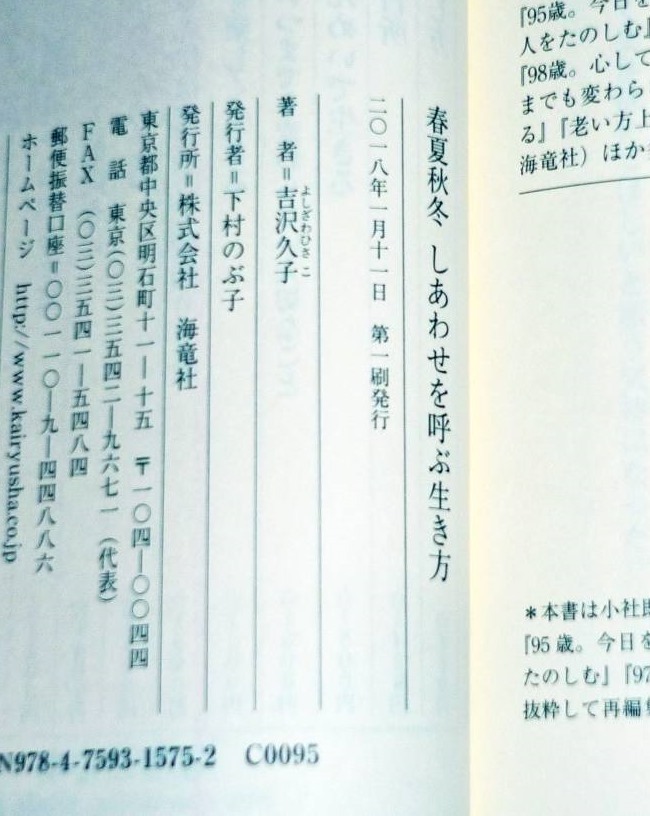 『95歳。今日を
人をたのしむ』
『98歳。心して
までも変わら
る』『老い方上
海竜社）ほか
*本書は小社既
『95歳。今日を
たのしむ』『97
抜粋して再編集
春夏秋冬 しあわせを呼ぶ生き方
二〇一八年一月十一日 第一刷発行
著 者＝吉沢久子
よしざわひさこ
発行者＝下村のぶ子
発行所＝株式会社 海竜社
東京都中央区明石町十一―十五 〒一〇四―〇〇四四
電 話 東京(〇三)三五四二―九六七一（代表）
FAX (〇三)三五四一―五四八四
郵便振替口座＝〇〇一一〇―九―四四八八六
ホームページ http://www.kairyusha.co.jp
N978-4-7593-1575-2 C0095